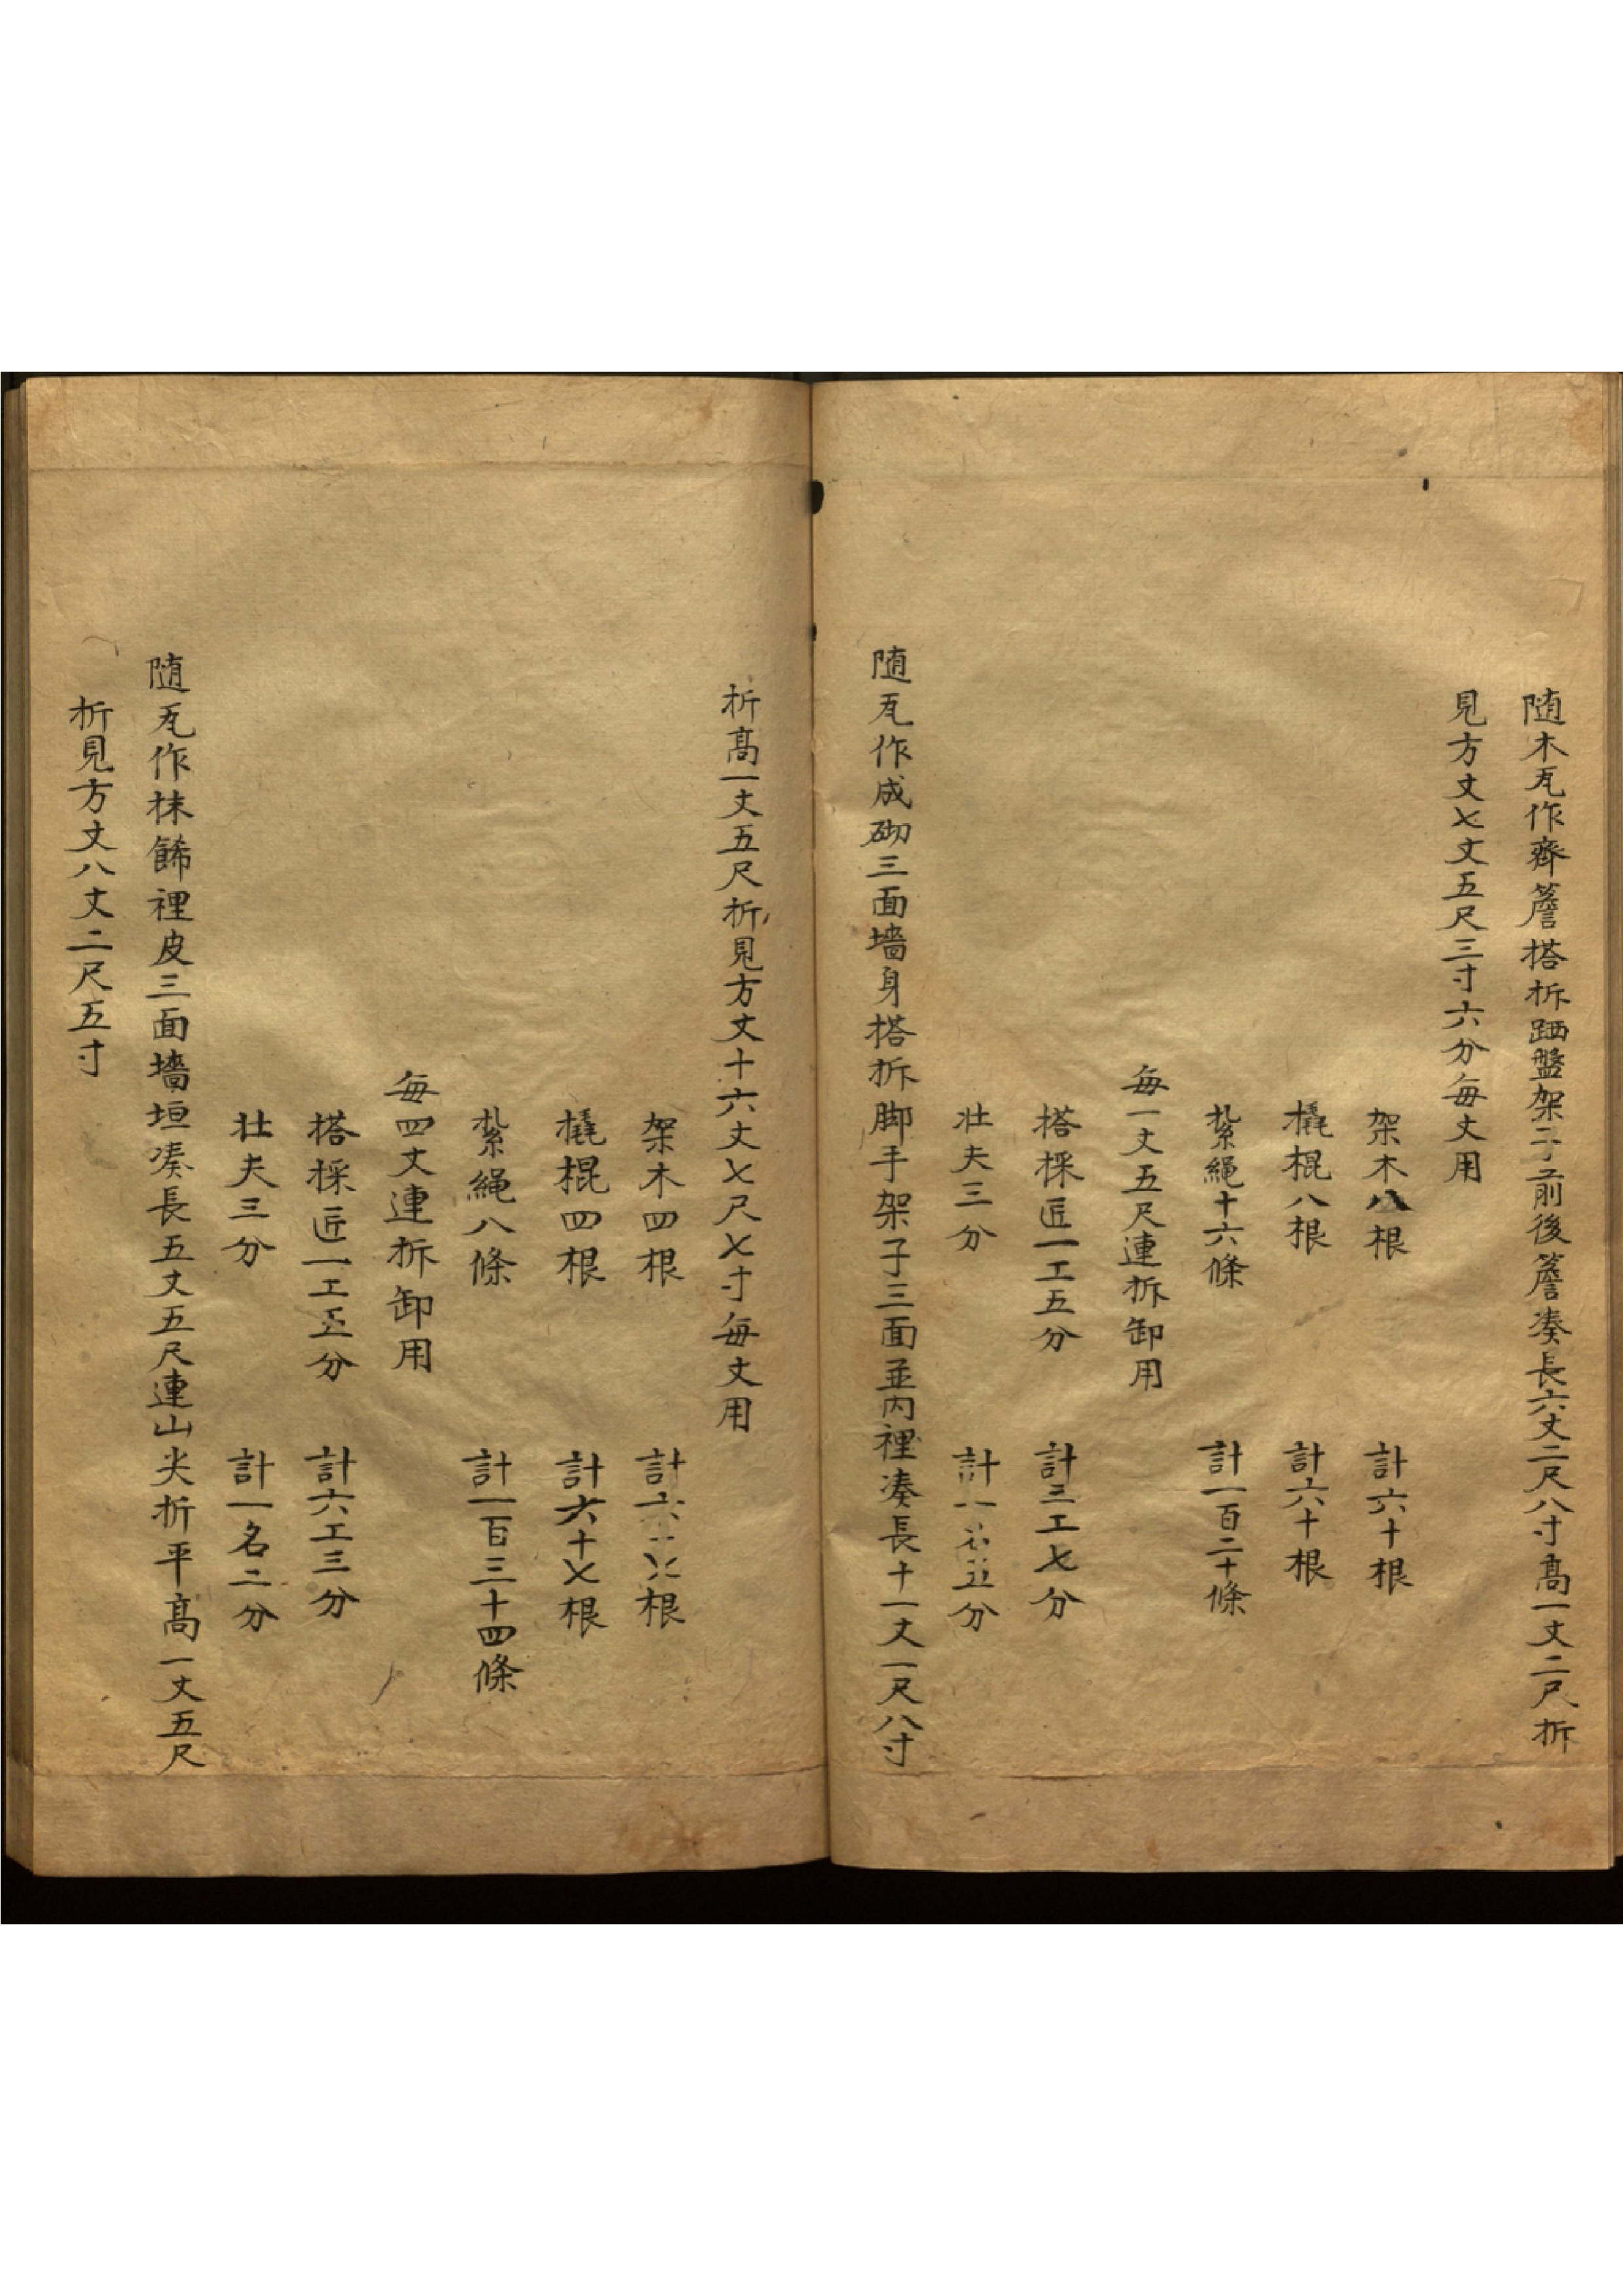 随木瓦作齊簷搭拆跴盤架子前後簷湊長六丈二尺八寸高一丈二尺折
見方丈七丈五尺三寸六分每丈用
架木八根 計六十根
橇棍八根 計六十根
紮繩十六條 計一百二十條
每一丈五尺連拆卸用
搭採匠一工五分 計三工七分
壮夫三分 計一名五分
随瓦作成砌三面墻身搭拆脚手架子三面並內裡湊長十一丈一尺八寸
折高一丈五尺折見方丈十六丈七尺七寸每丈用
架木四根 計六十七根
橇棍四根 計六十七根
紮繩八條 計一百三十四條
每四丈連拆卸用
搭採匠一工五分 計六工三分
壮夫三分 計一名二分
随瓦作抹餙裡皮三面墻垣湊長五丈五尺連山尖折平高一丈五尺
折見方丈八丈二尺五寸